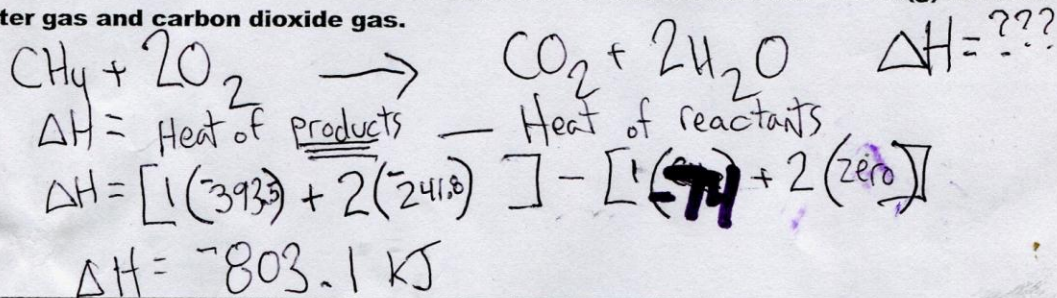 ter gas and carbon dioxide gas.
CH4 + 2O2 → CO2 + 2H2O ΔH = ???
ΔH = Heat of products — Heat of reactants
ΔH = [1(-393.5) + 2(-241.8)] - [1(-74) + 2(zero)]
ΔH = -803.1 KJ